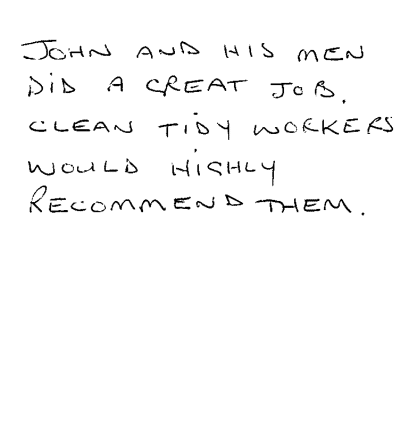 JOHN AND HIS MEN
DID A GREAT JOB.
CLEAN TIDY WORKERS
WOULD HIGHLY
RECOMMEND THEM.